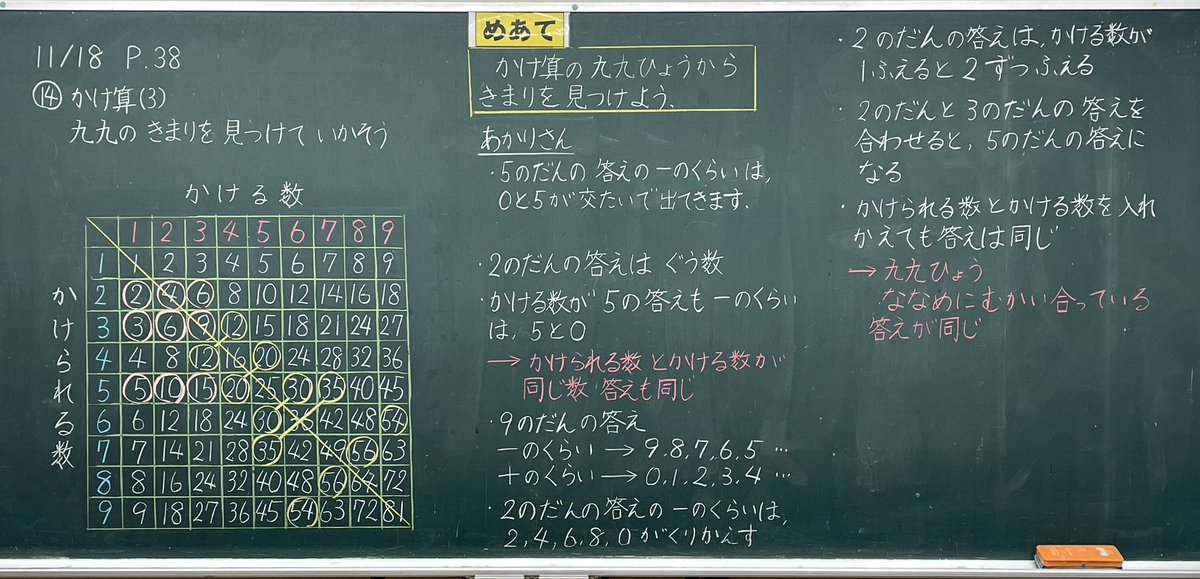 11/18 P.38
⑭ かけ算(3)
九九の きまりを 見つけて いかそう
かける数
かけられる数
1 2 3 4 5 6 7 8 9
1 1 2 3 4 5 6 7 8 9
2 2 4 6 8 10 12 14 16 18
3 3 6 9 12 15 18 21 24 27
4 4 8 12 16 20 24 28 32 36
5 5 10 15 20 25 30 35 40 45
6 6 12 18 24 30 36 42 48 54
7 7 14 21 28 35 42 49 56 63
8 8 16 24 32 40 48 56 64 72
9 9 18 27 36 45 54 63 72 81
めあて
かけ算の 九九ひょうから
きまりを 見つけよう.
あかりさん
・5のだんの 答えの一のくらいは,
0と5が交たいで出てきます.
・2のだんの答えは ぐう数
・かける数が 5の答えも一のくらい
は, 5と0
→ かけられる数 とかける数が
同じ数 答えも同じ
・9のだんの答え
一のくらい → 9,8,7,6,5 …
十のくらい → 0,1,2,3,4 …
・2のだんの答えの一のくらいは,
2,4,6,8,0 がくりかえす
・2のだんの答えは, かける数が
1ふえると2ずつふえる
・2のだんと 3のだんの 答えを
合わせると, 5のだんの答えに
なる
・かけられる数とかける数を入れ
かえても答えは同じ
→ 九九ひょう
ななめにむかい合っている
答えが同じ